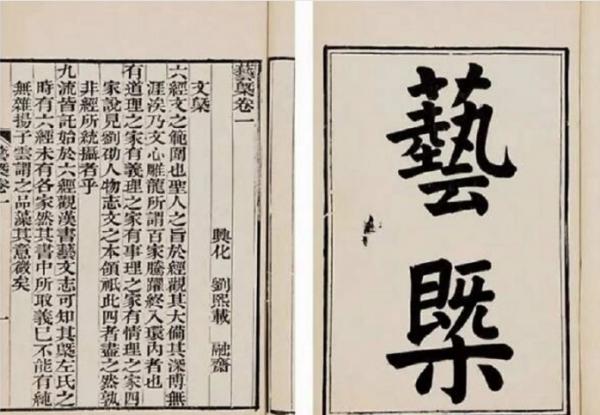 藝
槩
藝槩卷一
興化 劉熙載 融齋
文槩
六經文之範圍也聖人之旨於經觀其大備其深博無
涯涘乃文心雕龍所謂百家騰躍終入環內者也
有道理之家有義理之家有事理之家有情理之家四
家說見劉劭人物志文之本領祇此四者盡之然孰
非經所統攝者乎
九流皆託始於六經觀漢書藝文志可知其槩左氏之
時有六經未有各家然其書中所取義已不能有純
無雜揚子雲謂之品藻其意微矣
藝槩卷一 一